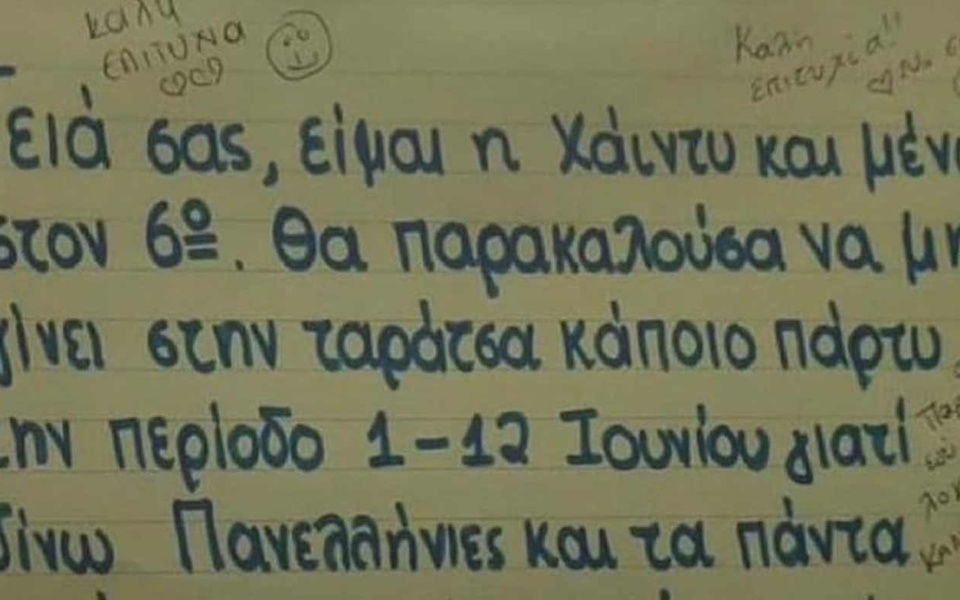 Καλή
επιτυχια
Καλή
επιτυχία!!
Γειά σας, είμαι η Χάιντυ και μένω
στον 6º. Θα παρακαλούσα να μη
γίνει στην ταράτσα κάποιο πάρτυ
την περίοδο 1-12 Ιουνίου γιατί
δίνω Πανελλήνιες και τα πάντα